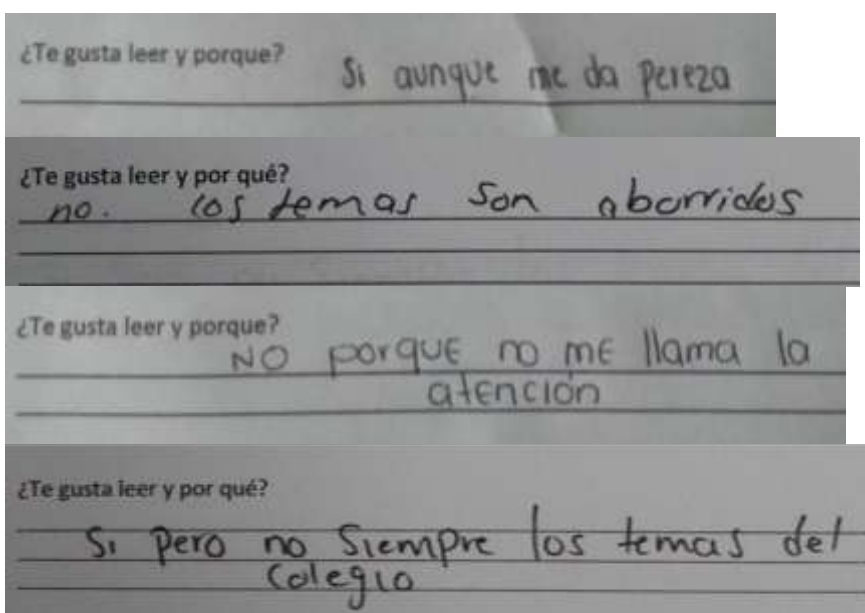 ¿Te gusta leer y porque?
Si aunque me da pereza
¿Te gusta leer y por qué?
no. los temas son aborridos
¿Te gusta leer y porque?
NO porque no me llama la
atención
¿Te gusta leer y por qué?
Si pero no siempre los temas del
Colegio